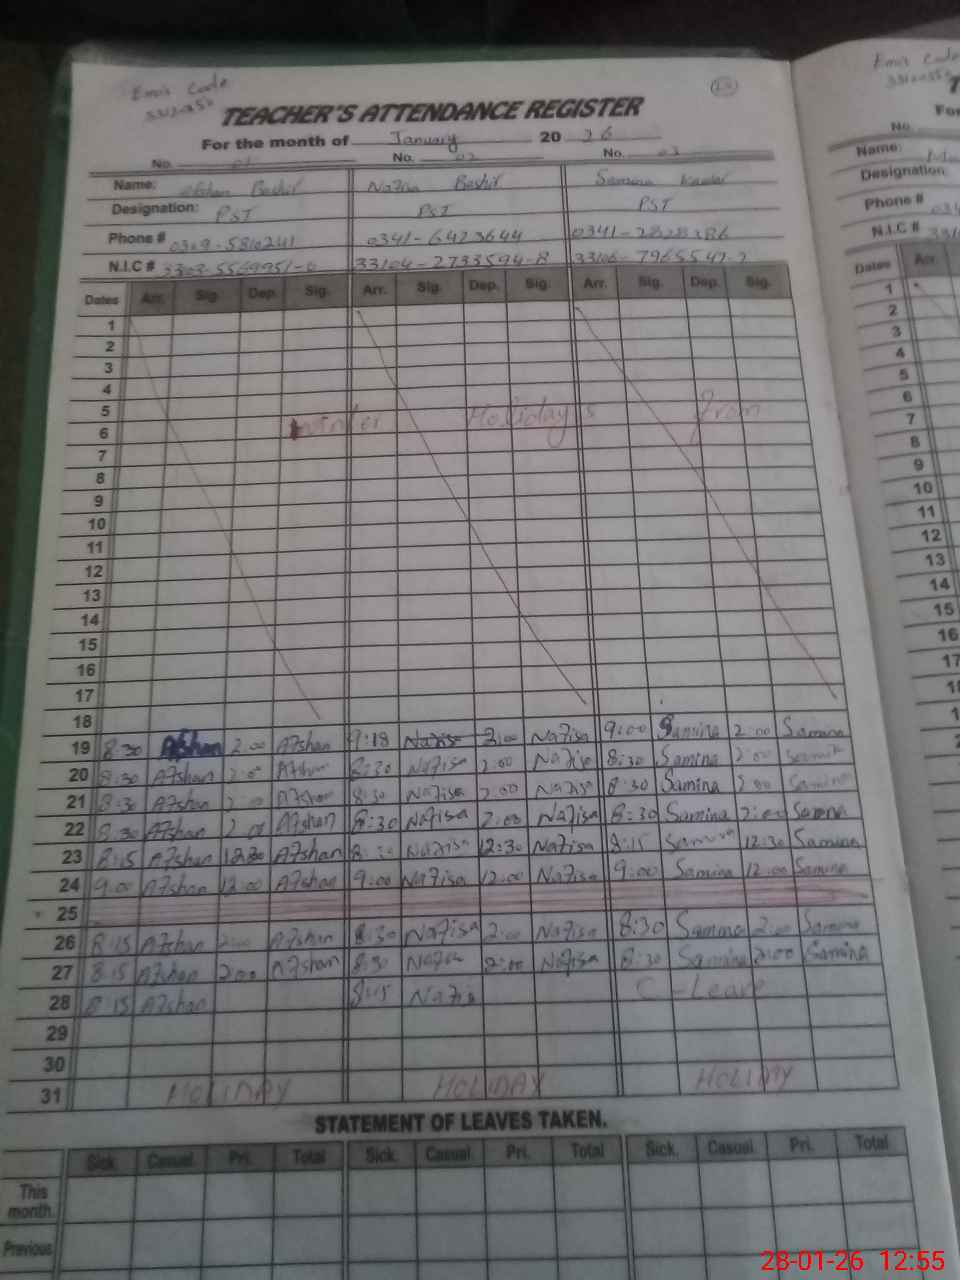 Emis Code
TEACHER'S ATTENDANCE REGISTER
For the month of January 20 26
No. 01 No. 02 No. 03
Name: Afshan Bashir Nafisa Bashir Samina Kausar
Designation: PST PST PST
Phone # 0309-5810241 0341-6423644 0341-2828186
N.I.C # 33104-2733594-8
Dates Arr. Sig. Dep. Sig. Arr. Sig. Dep. Sig. Arr. Sig. Dep. Sig.
1
2
3
4
5 Winter Holidays from
6
7
8
9
10
11
12
13
14
15
16
17
18
19 8:30 Afshan 2:00 Afshan 9:18 Nafisa 2:00 Nafisa 9:00 Samina 2:00 Samina
20 8:30 Afshan 2:00 Afshan 8:30 Nafisa 2:00 Nafisa 8:30 Samina 2:00 Samina
21 8:30 Afshan 2:00 Afshan 8:30 Nafisa 2:00 Nafisa 8:30 Samina 2:00 Samina
22 8:30 Afshan 2:00 Afshan 8:30 Nafisa 2:00 Nafisa 8:30 Samina 2:00 Samina
23 8:15 Afshan 12:30 Afshan Nafisa 12:30 Nafisa 8:15 Samina 12:30 Samina
24 9:00 Afshan 12:00 Afshan 9:00 Nafisa 12:00 Nafisa 9:00 Samina 12:00 Samina
25
26 8:15 Afshan 2:00 Afshan 8:30 Nafisa 2:00 Nafisa 8:30 Samina 2:00 Samina
27 8:15 Afshan 2:00 Afshan 8:30 Nafisa 2:00 Nafisa 8:30 Samina 2:00 Samina
28 8:15 Afshan 8:15 Nafisa C-Leave
29
30
31 HOLIDAY HOLIDAY HOLIDAY
STATEMENT OF LEAVES TAKEN.
Sick. Casual Pri. Total Sick. Casual Pri. Total Sick. Casual Pri. Total
This month.
Previous
Emis Code
No.
Name:
Designation
Phone #
N.I.C #
Dates Arr.
1
2
3
4
5
6
7
8
9
10
11
12
13
14
15
16
17
28-01-26 12:55